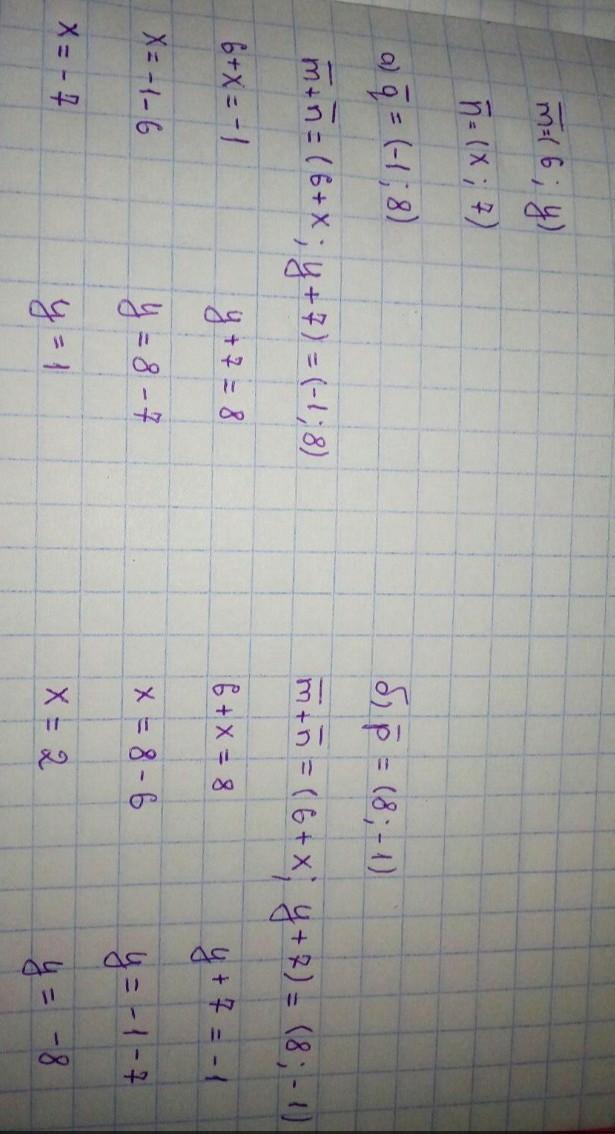 m̅=(6 ; y)
n̅=(x ; 7)
а) q̅ = (-1 ; 8)
m̅+n̅ = (6+x ; y+7) = (-1 ; 8)
6+x = -1 y+7 = 8
x = -1-6 y = 8-7
x = -7 y = 1
б) p̅ = (8 ; -1)
m̅+n̅ = (6+x ; y+7) = (8 ; -1)
6+x = 8 y+7 = -1
x = 8-6 y = -1-7
x = 2 y = -8